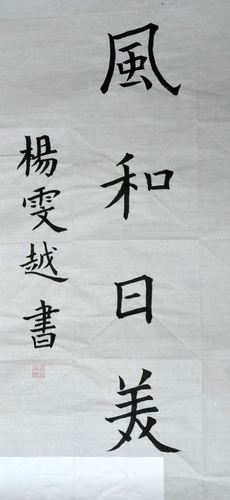 風和日美
楊雯越書